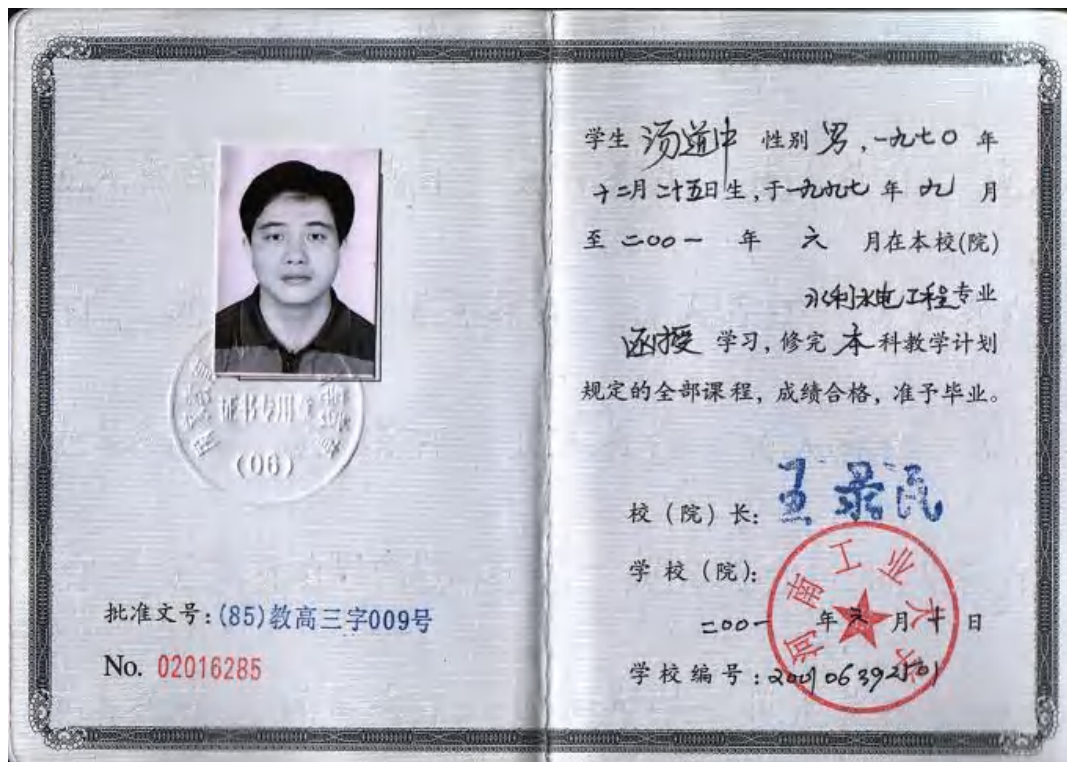 证书专用章
(06)
批准文号:(85)教高三字009号
No. 02016285
学生 汤道中 性别 男,一九七〇 年
十二月二十五日生,于一九九七 年 九 月
至 二〇〇一 年 六 月在本校(院)
水利水电工程专业
函授 学习,修完 本 科教学计划
规定的全部课程,成绩合格,准予毕业。
校(院)长:王录民
学校(院):
河南工业大学
二〇〇一 年 六 月 十 日
学校编号: